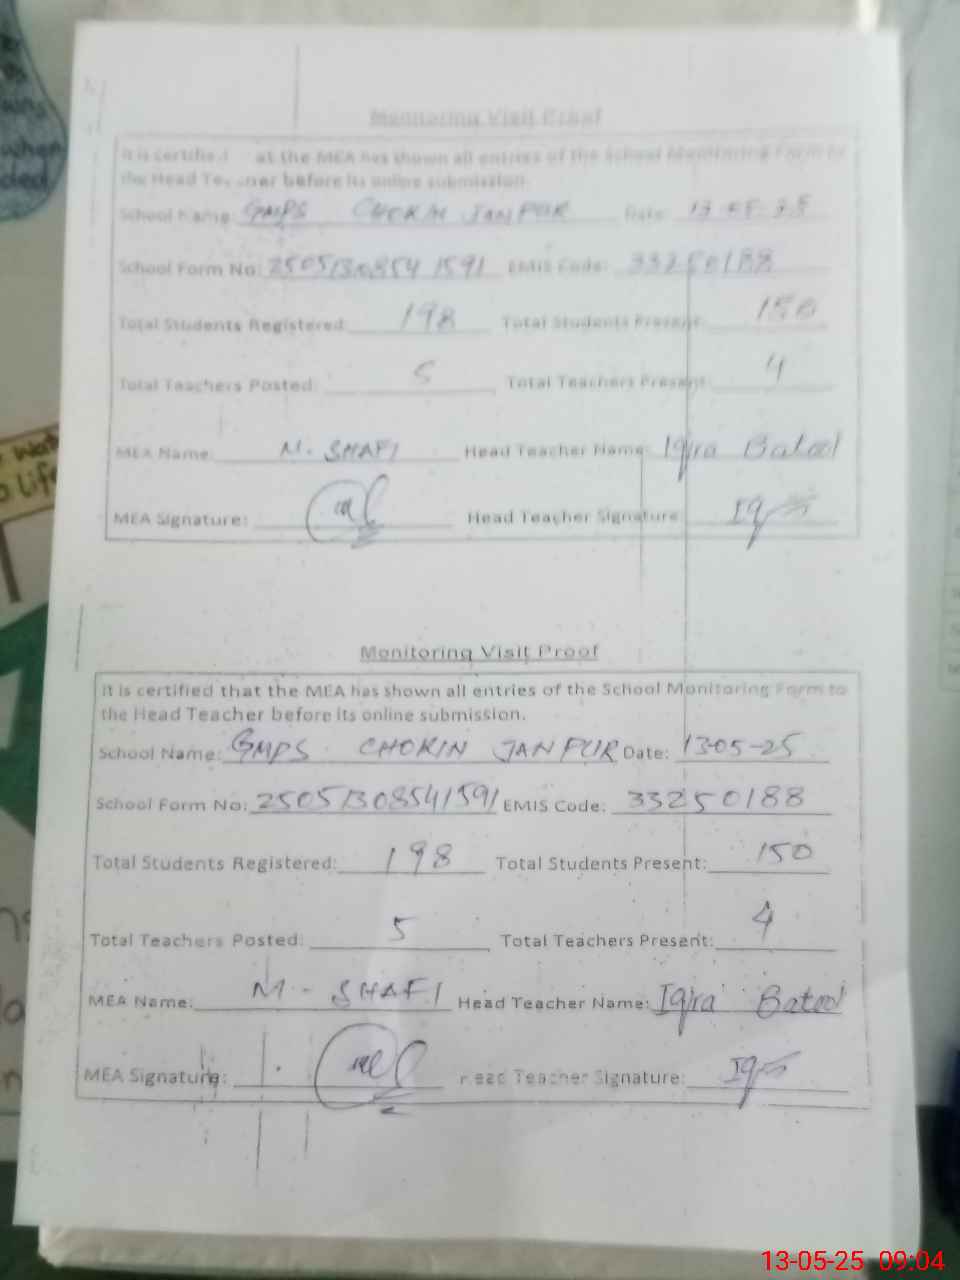 Monitoring Visit Proof
It is certified at the MEA has shown all entries of the School Monitoring Form to
the Head Teacher before its online submission.
School Name: GMPS CHOKIN JANPUR Date: 13-05-25
School Form No: 2505130854 1591 EMIS Code: 33250188
Total Students Registered: 198 Total Students Present: 150
Total Teachers Posted: 5 Total Teachers Present: 4
MEA Name: M. SHAFI Head Teacher Name: Iqra Batool
MEA Signature: Head Teacher Signature:
Monitoring Visit Proof
It is certified that the MEA has shown all entries of the School Monitoring Form to
the Head Teacher before its online submission.
School Name: GMPS CHOKIN JANPUR Date: 13-05-25
School Form No: 25051308541591 EMIS Code: 33250188
Total Students Registered: 198 Total Students Present: 150
Total Teachers Posted: 5 Total Teachers Present: 4
MEA Name: M - SHAFI Head Teacher Name: Iqra Batool
MEA Signature: Head Teacher Signature:
13-05-25 09:04